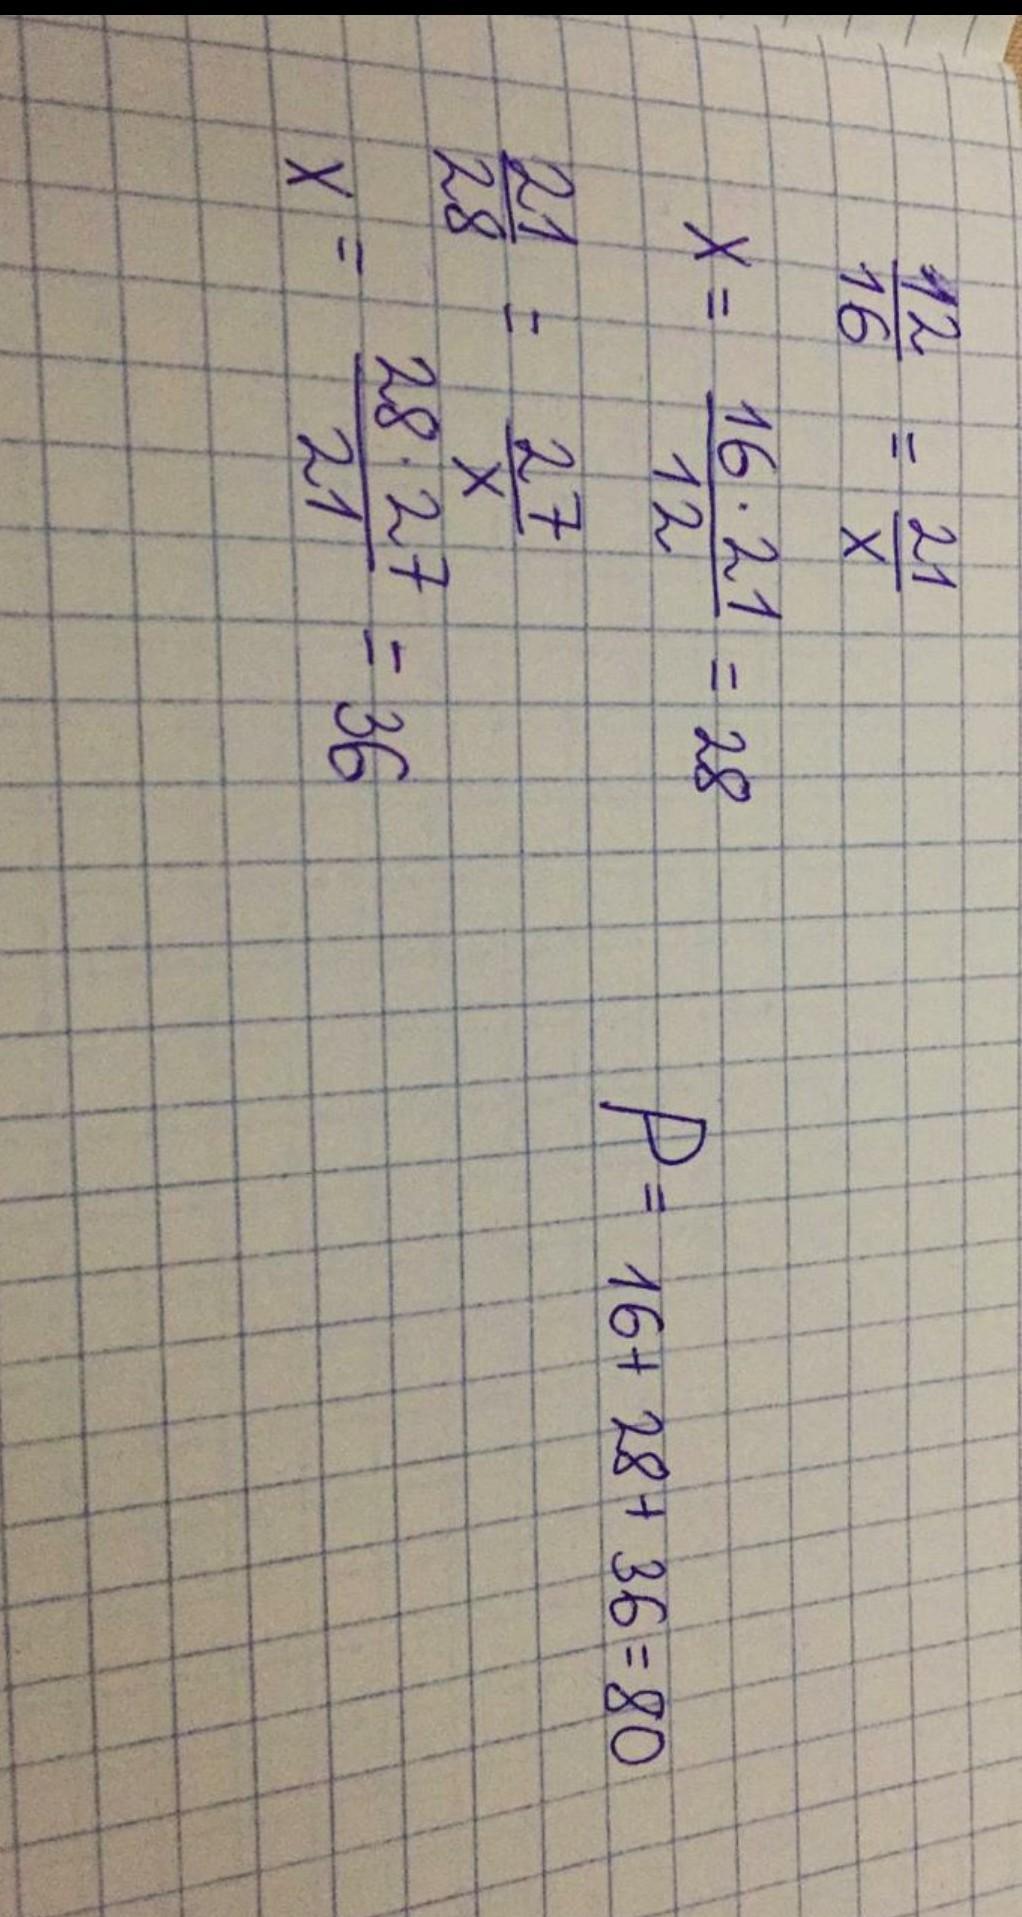 12/16 = 21/x
x = 16·21/12 = 28
21/28 = 27/x
x = 28·27/21 = 36
P = 16+ 28+ 36=80